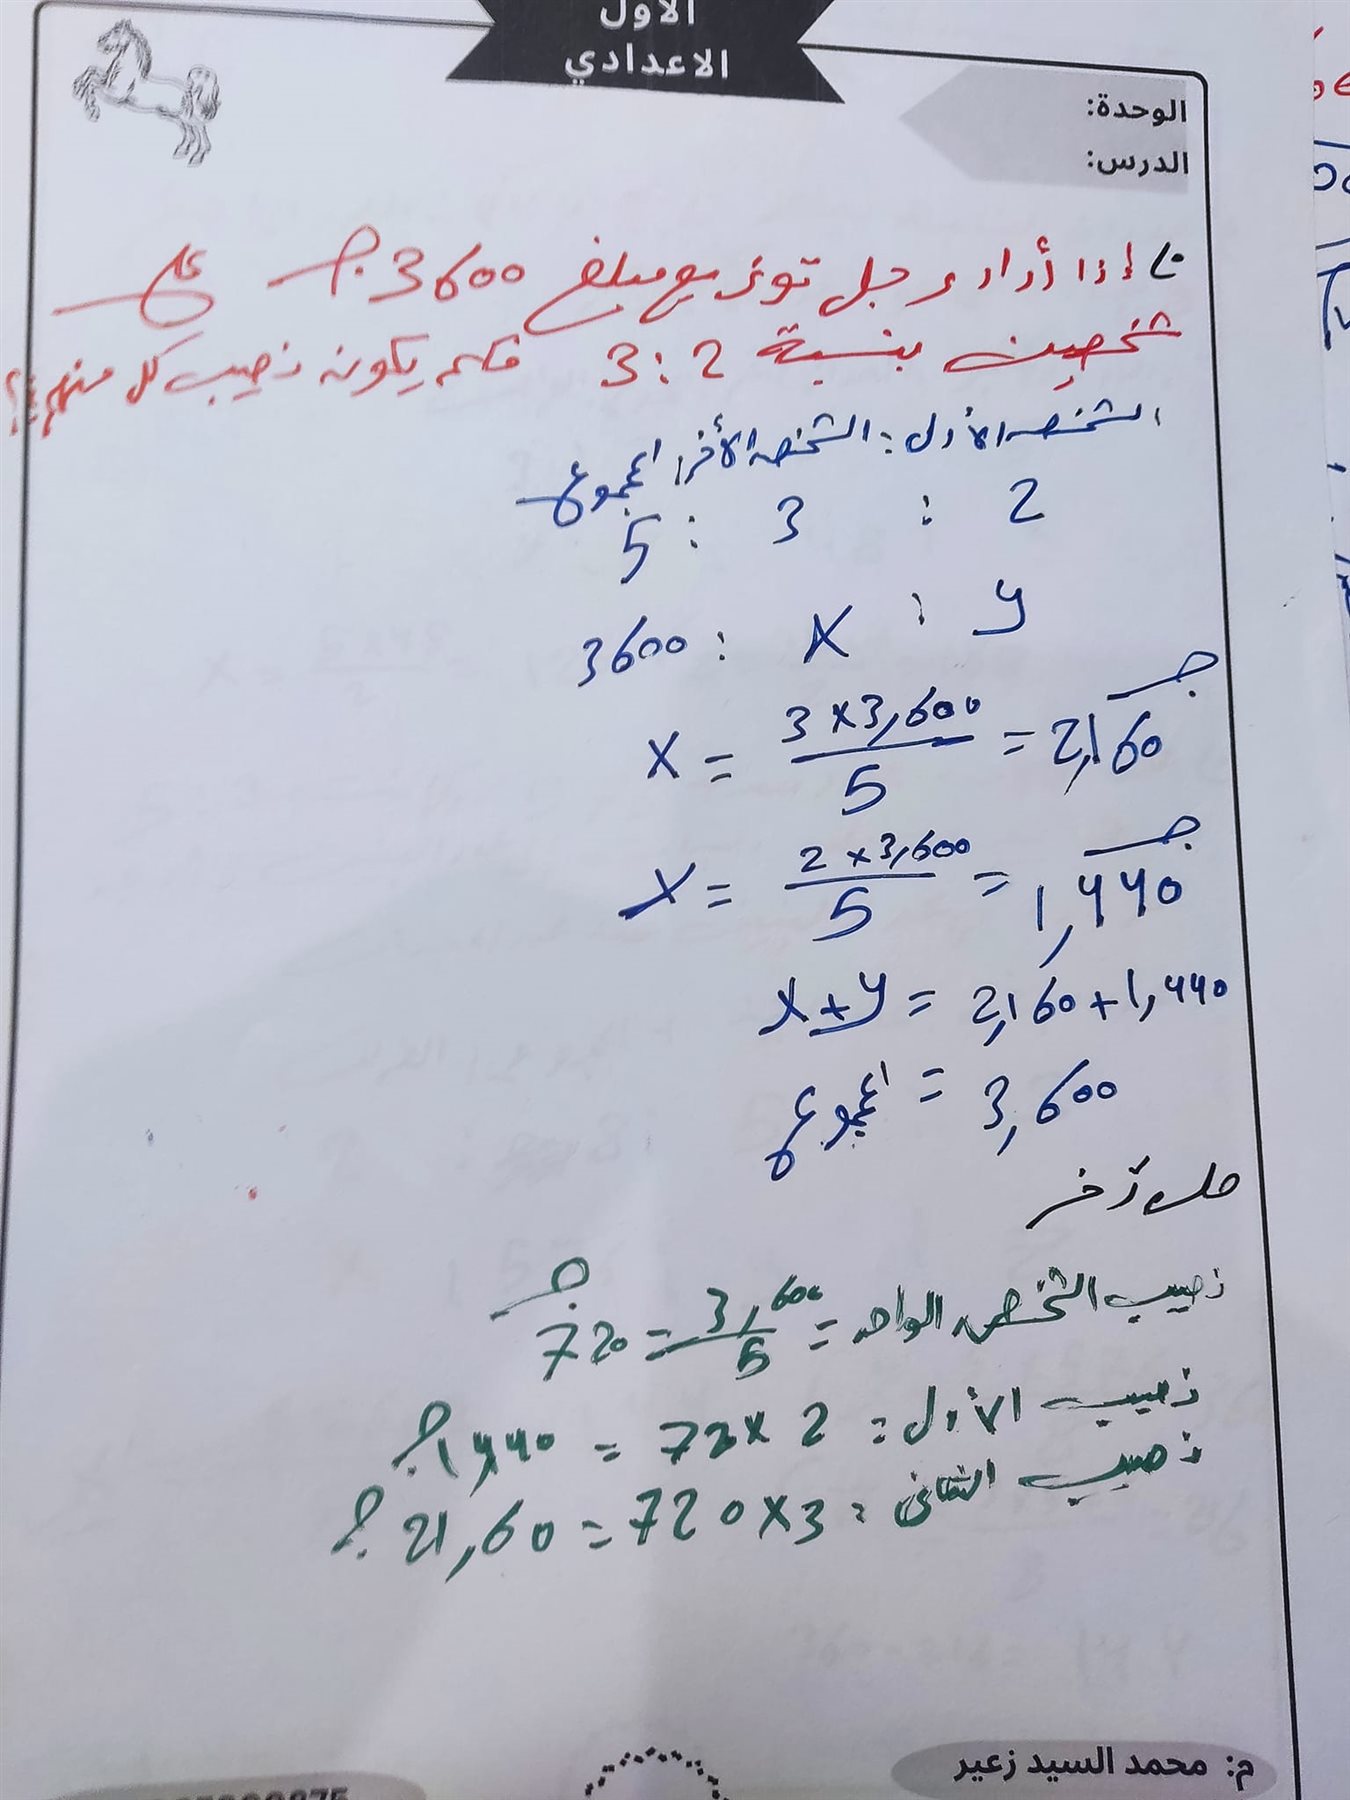 الأول
الاعدادي
الوحدة:
الدرس:
إذا أراد رجل توزيع مبلغ 3600 جـ على
شخصين بنسبة 2 : 3 فكم يكون نصيب كل منهم؟
الشخص الأول : الشخص الأخر : المجموع
2 : 3 : 5
y : x : 3600
x = 3 x 3,600 / 5 = 2,160 جـ
x = 2 x 3,600 / 5 = 1,440 جـ
x + y = 2,160 + 1,440
المجموع = 3,600
حل آخر
نصيب الشخص الواحد = 3,600 / 5 = 720 جـ
نصيب الأول = 2 x 720 = 1,440 جـ
نصيب الثاني = 3 x 720 = 21,60 جـ
م: محمد السيد زعير